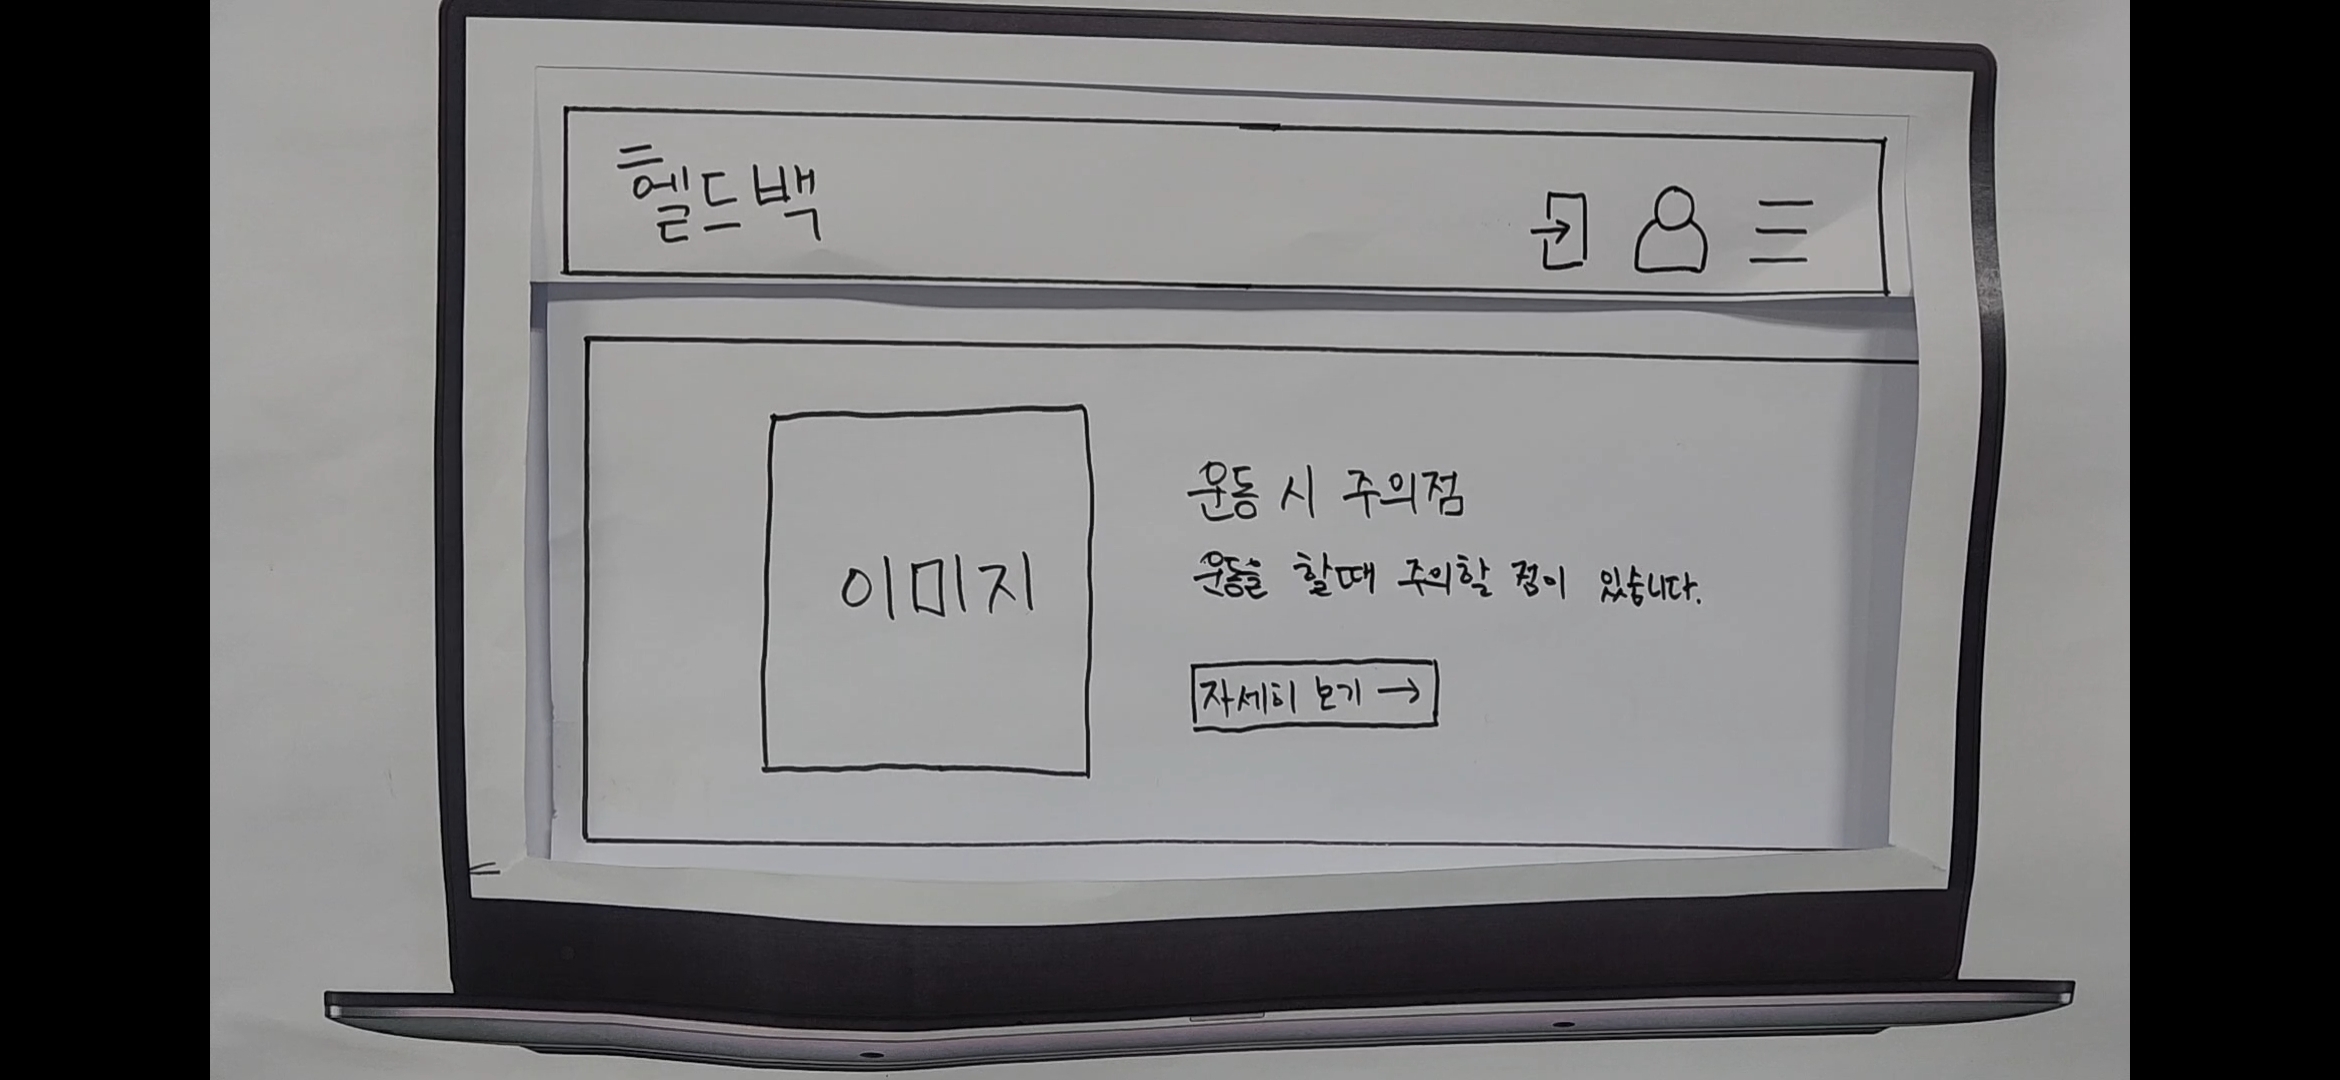 헬드백
이미지
운동 시 주의점
운동을 할때 주의할 점이 있습니다.
자세히 보기 →